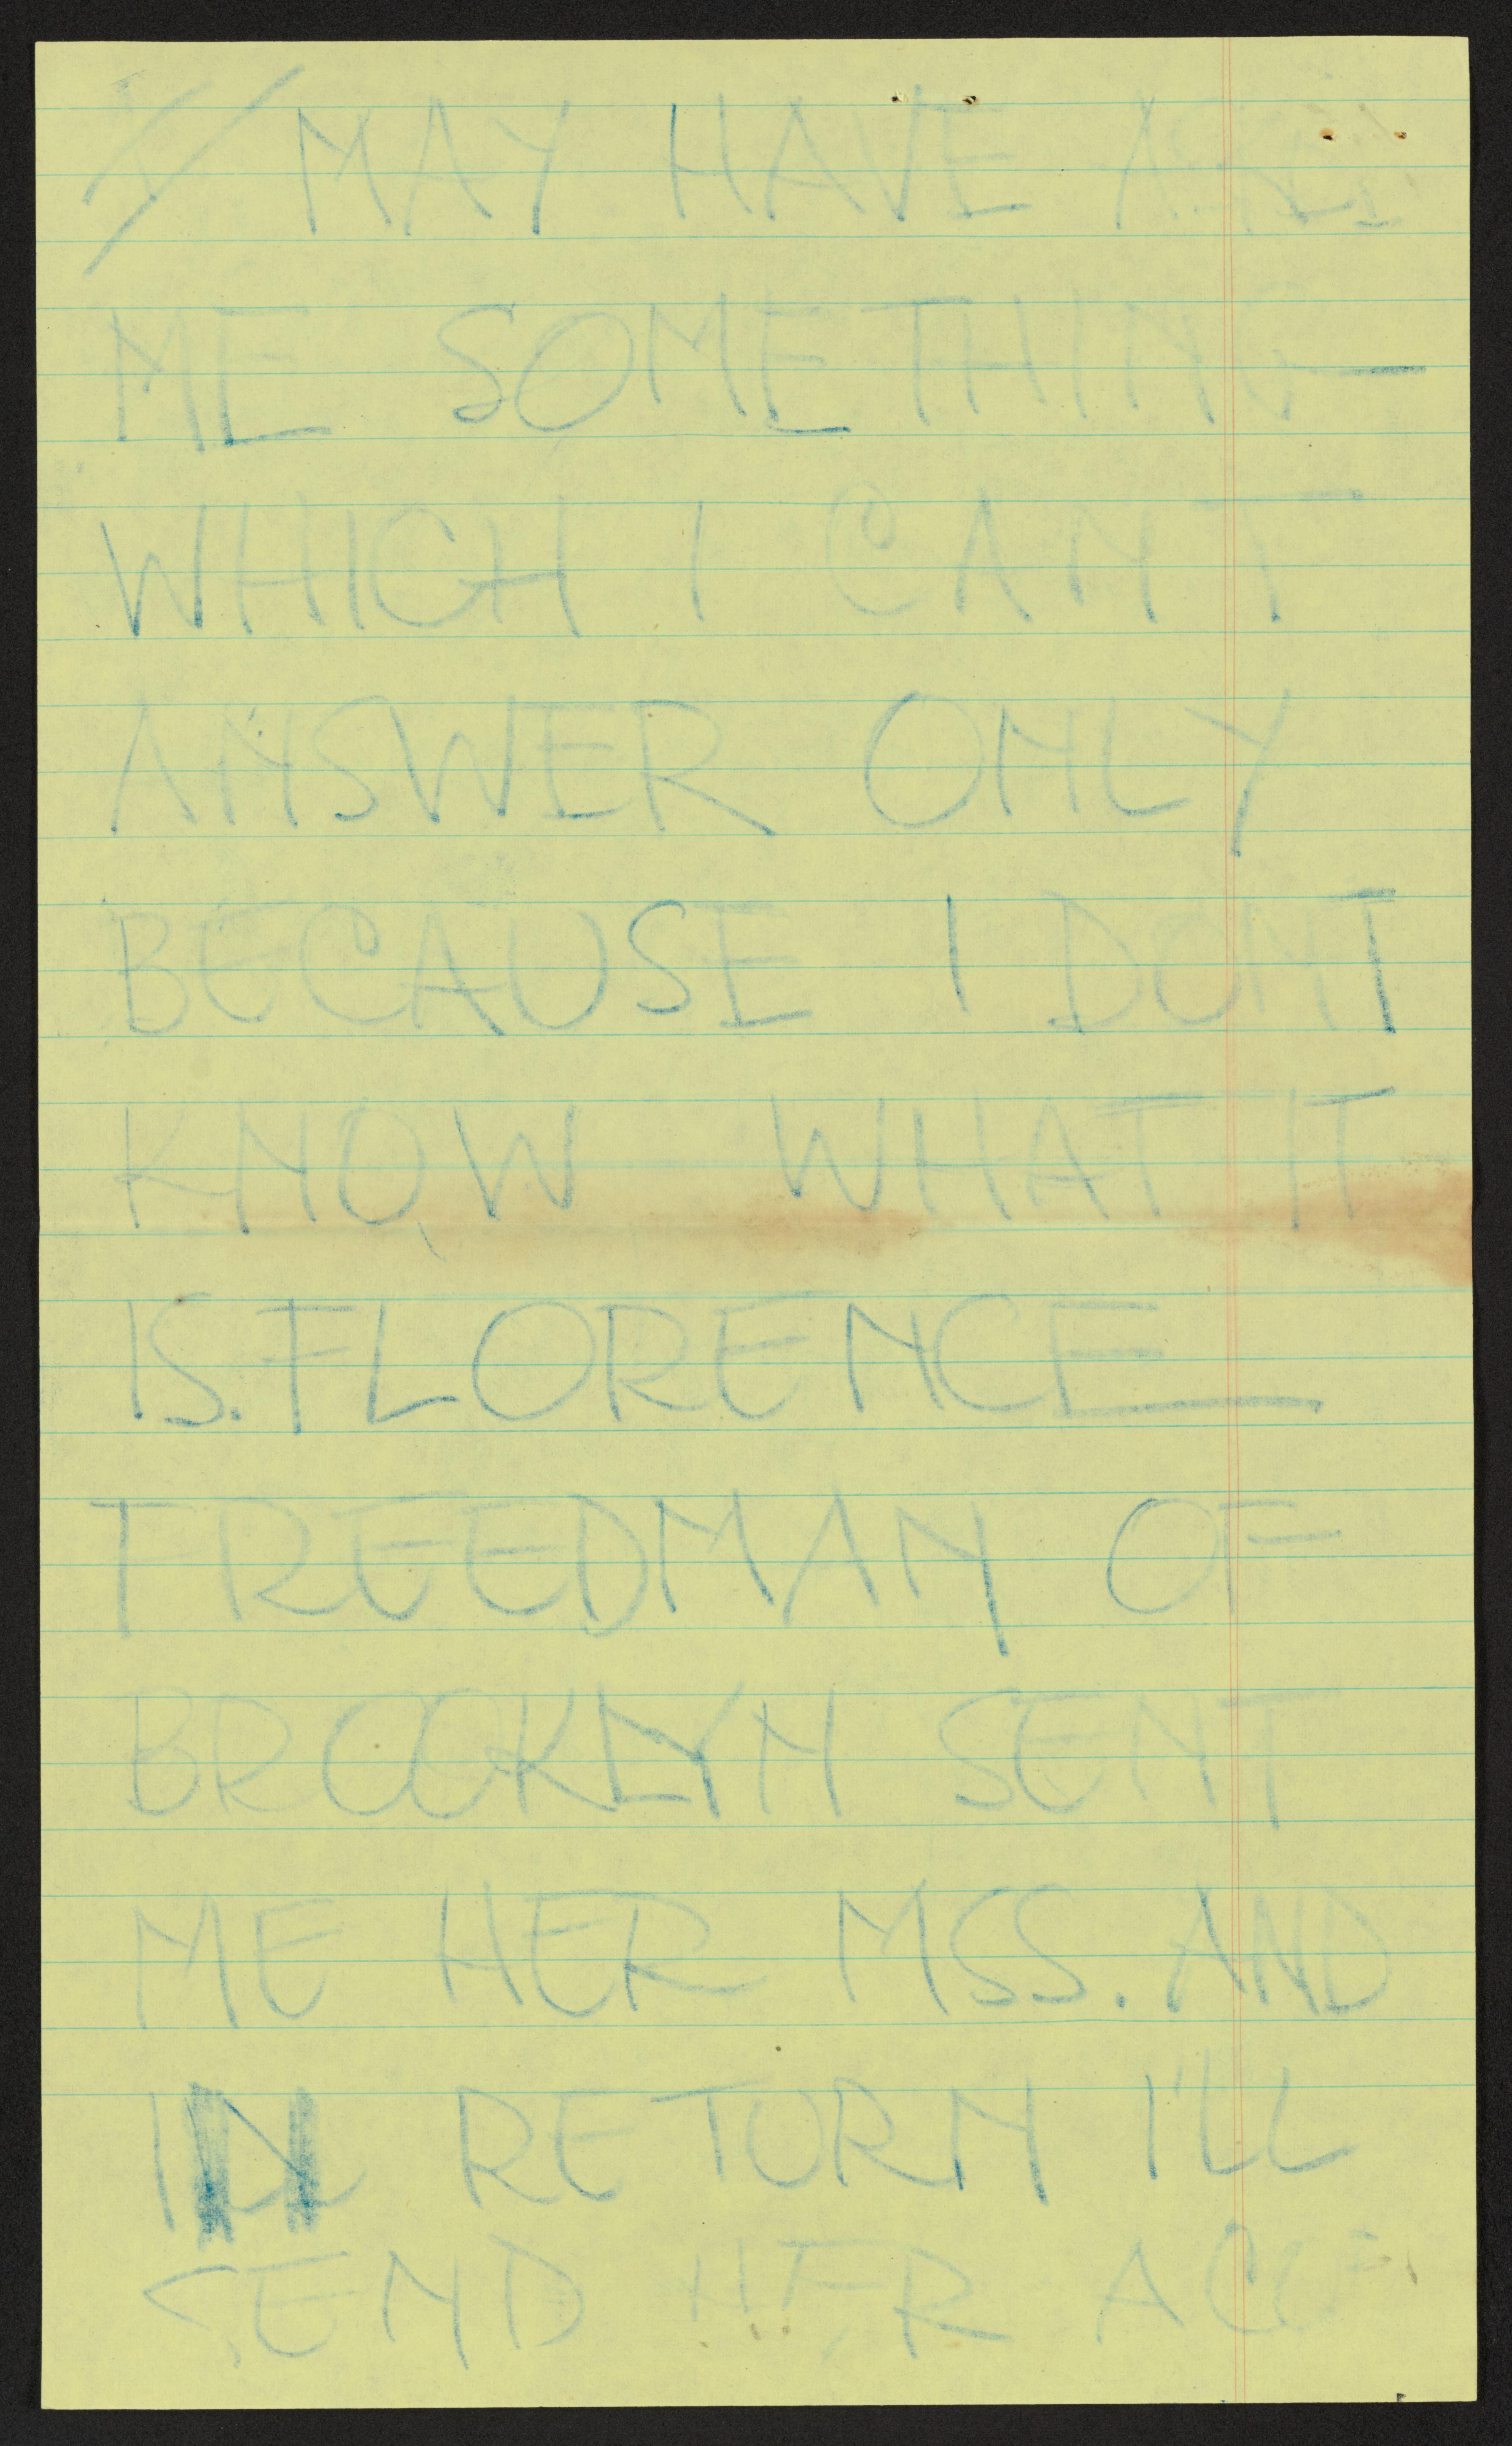 MAY HAVE
ME SOMETHING—
WHICH I CAN'T
ANSWER ONLY
BECAUSE I DONT
KNOW WHAT IT
IS. FLORENCE
FREEDMAN OF
BROOKLYN SENT
ME HER MSS. AND
IN RETURN I'LL
SEND HER A